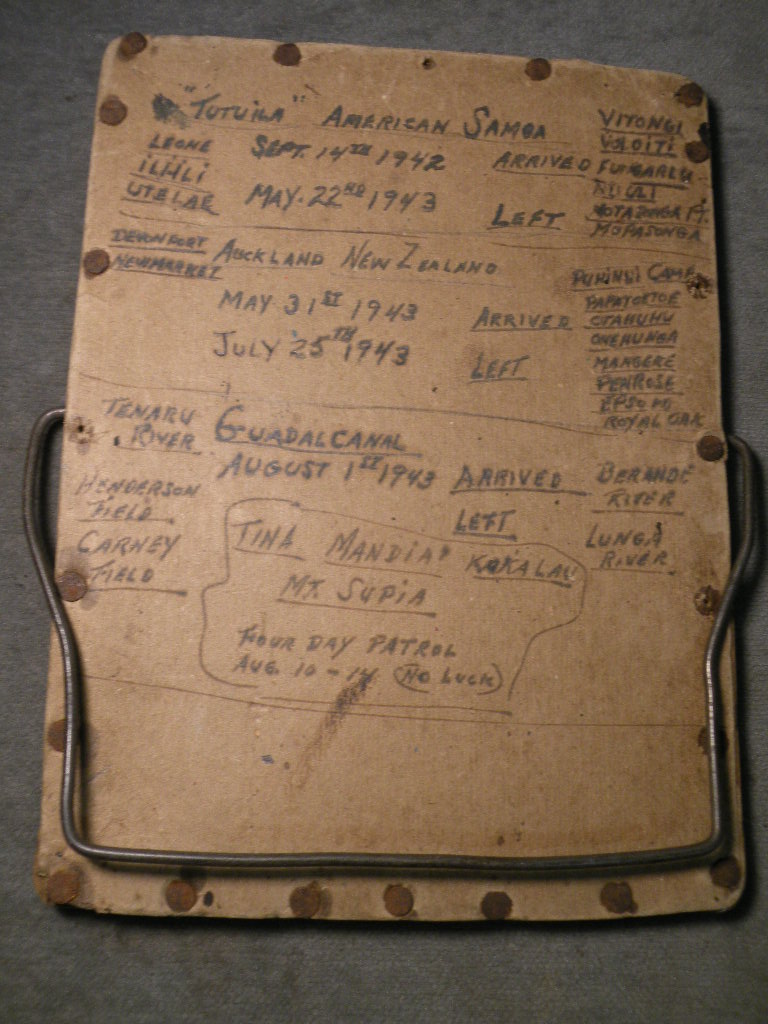 "TUTUILA" AMERICAN SAMOA
LEONE
ILIILI
UTELAE
SEPT. 14TH 1942 ARRIVED
MAY. 22ND 1943 LEFT
VITONGI
VILOITI
FUNGARLU
NUULI
MOPASONGA
DEVONPORT
NEWMARKET
AUCKLAND NEW ZEALAND
MAY 31ST 1943 ARRIVED
JULY 25TH 1943 LEFT
PUHINUI CAMP
PAPATOETOE
OTAHUHU
ONEHUNGA
MANGERE
PENROSE
EPSOM
ROYAL OAK
TENARU
RIVER
GUADALCANAL
AUGUST 1ST 1943 ARRIVED
LEFT
HENDERSON
FIELD
CARNEY
FIELD
BERANDE
RIVER
LUNGA
RIVER
TINA MANDIA KOKALAU
MT. SUPIA
FOUR DAY PATROL
AUG. 10 - 14 (NO LUCK)